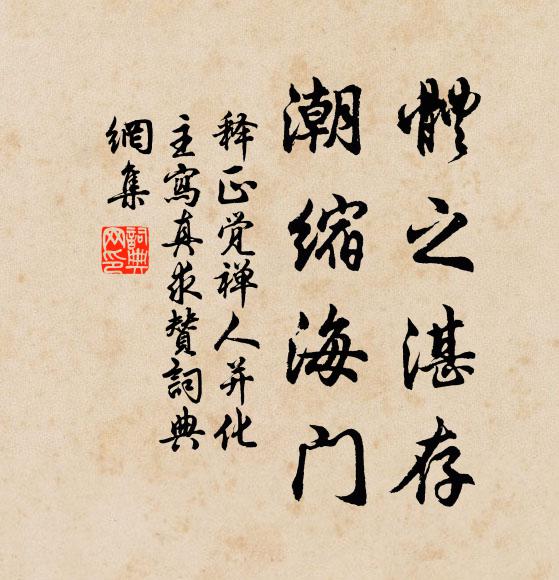 體之湛存
潮缩海门
释正觉禅人并化
主寫真求贊詞典
網集
詞典
网印